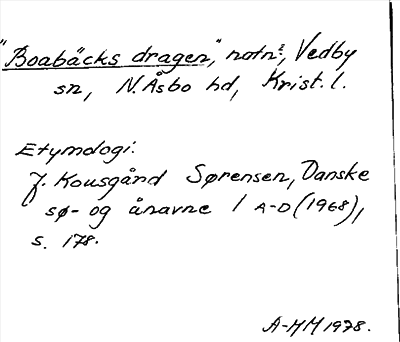 "Boabäcks dragen", natn?, Vedby
sn, N. Åsbo hd, Krist. l.
Etymologi:
J. Kousgård Sørensen, Danske
sø- og ånavne 1 A-D (1968),
s. 178.
A-HM 1978.